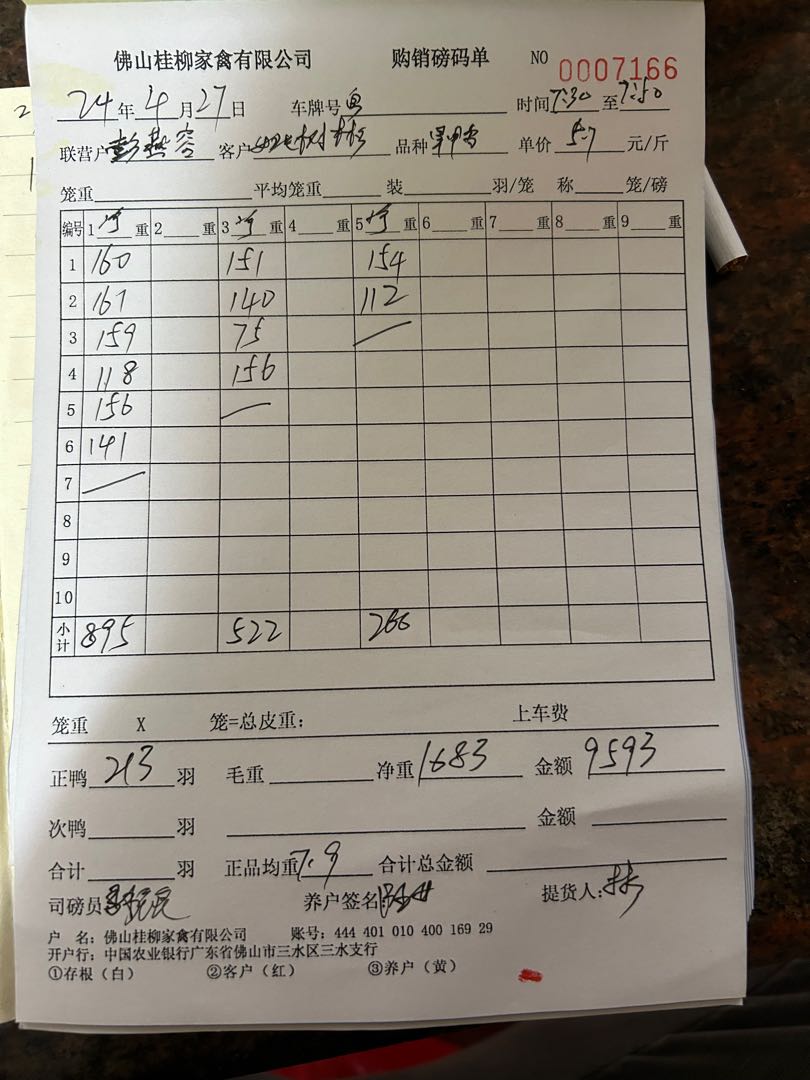 佛山桂柳家禽有限公司 购销磅码单 NO 0007166
24年4月27日 车牌号 时间7:30至7:50
联营户彭燕容 客户 品种 单价5.7元/斤
笼重 平均笼重 装 羽/笼 称 笼/磅
编号 1 重 2 重 3 重 4 重 5 重 6 重 7 重 8 重 9 重
1 160 151 154
2 161 140 112
3 159 75
4 118 156
5 156
6 141
7
8
9
10
小计 895 522 266
笼重 X 笼=总皮重: 上车费
正鸭213羽 毛重 净重1683 金额9593
次鸭 羽 金额
合计 羽 正品均重7.9 合计总金额
司磅员 养户签名 提货人:林
户 名: 佛山桂柳家禽有限公司 账号: 444 401 010 400 169 29
开户行: 中国农业银行广东省佛山市三水区三水支行
①存根(白) ②客户(红) ③养户(黄)